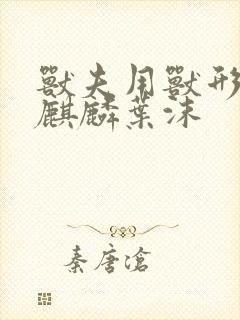 獸夫用獸形
麒麟葉沫
秦唐滄